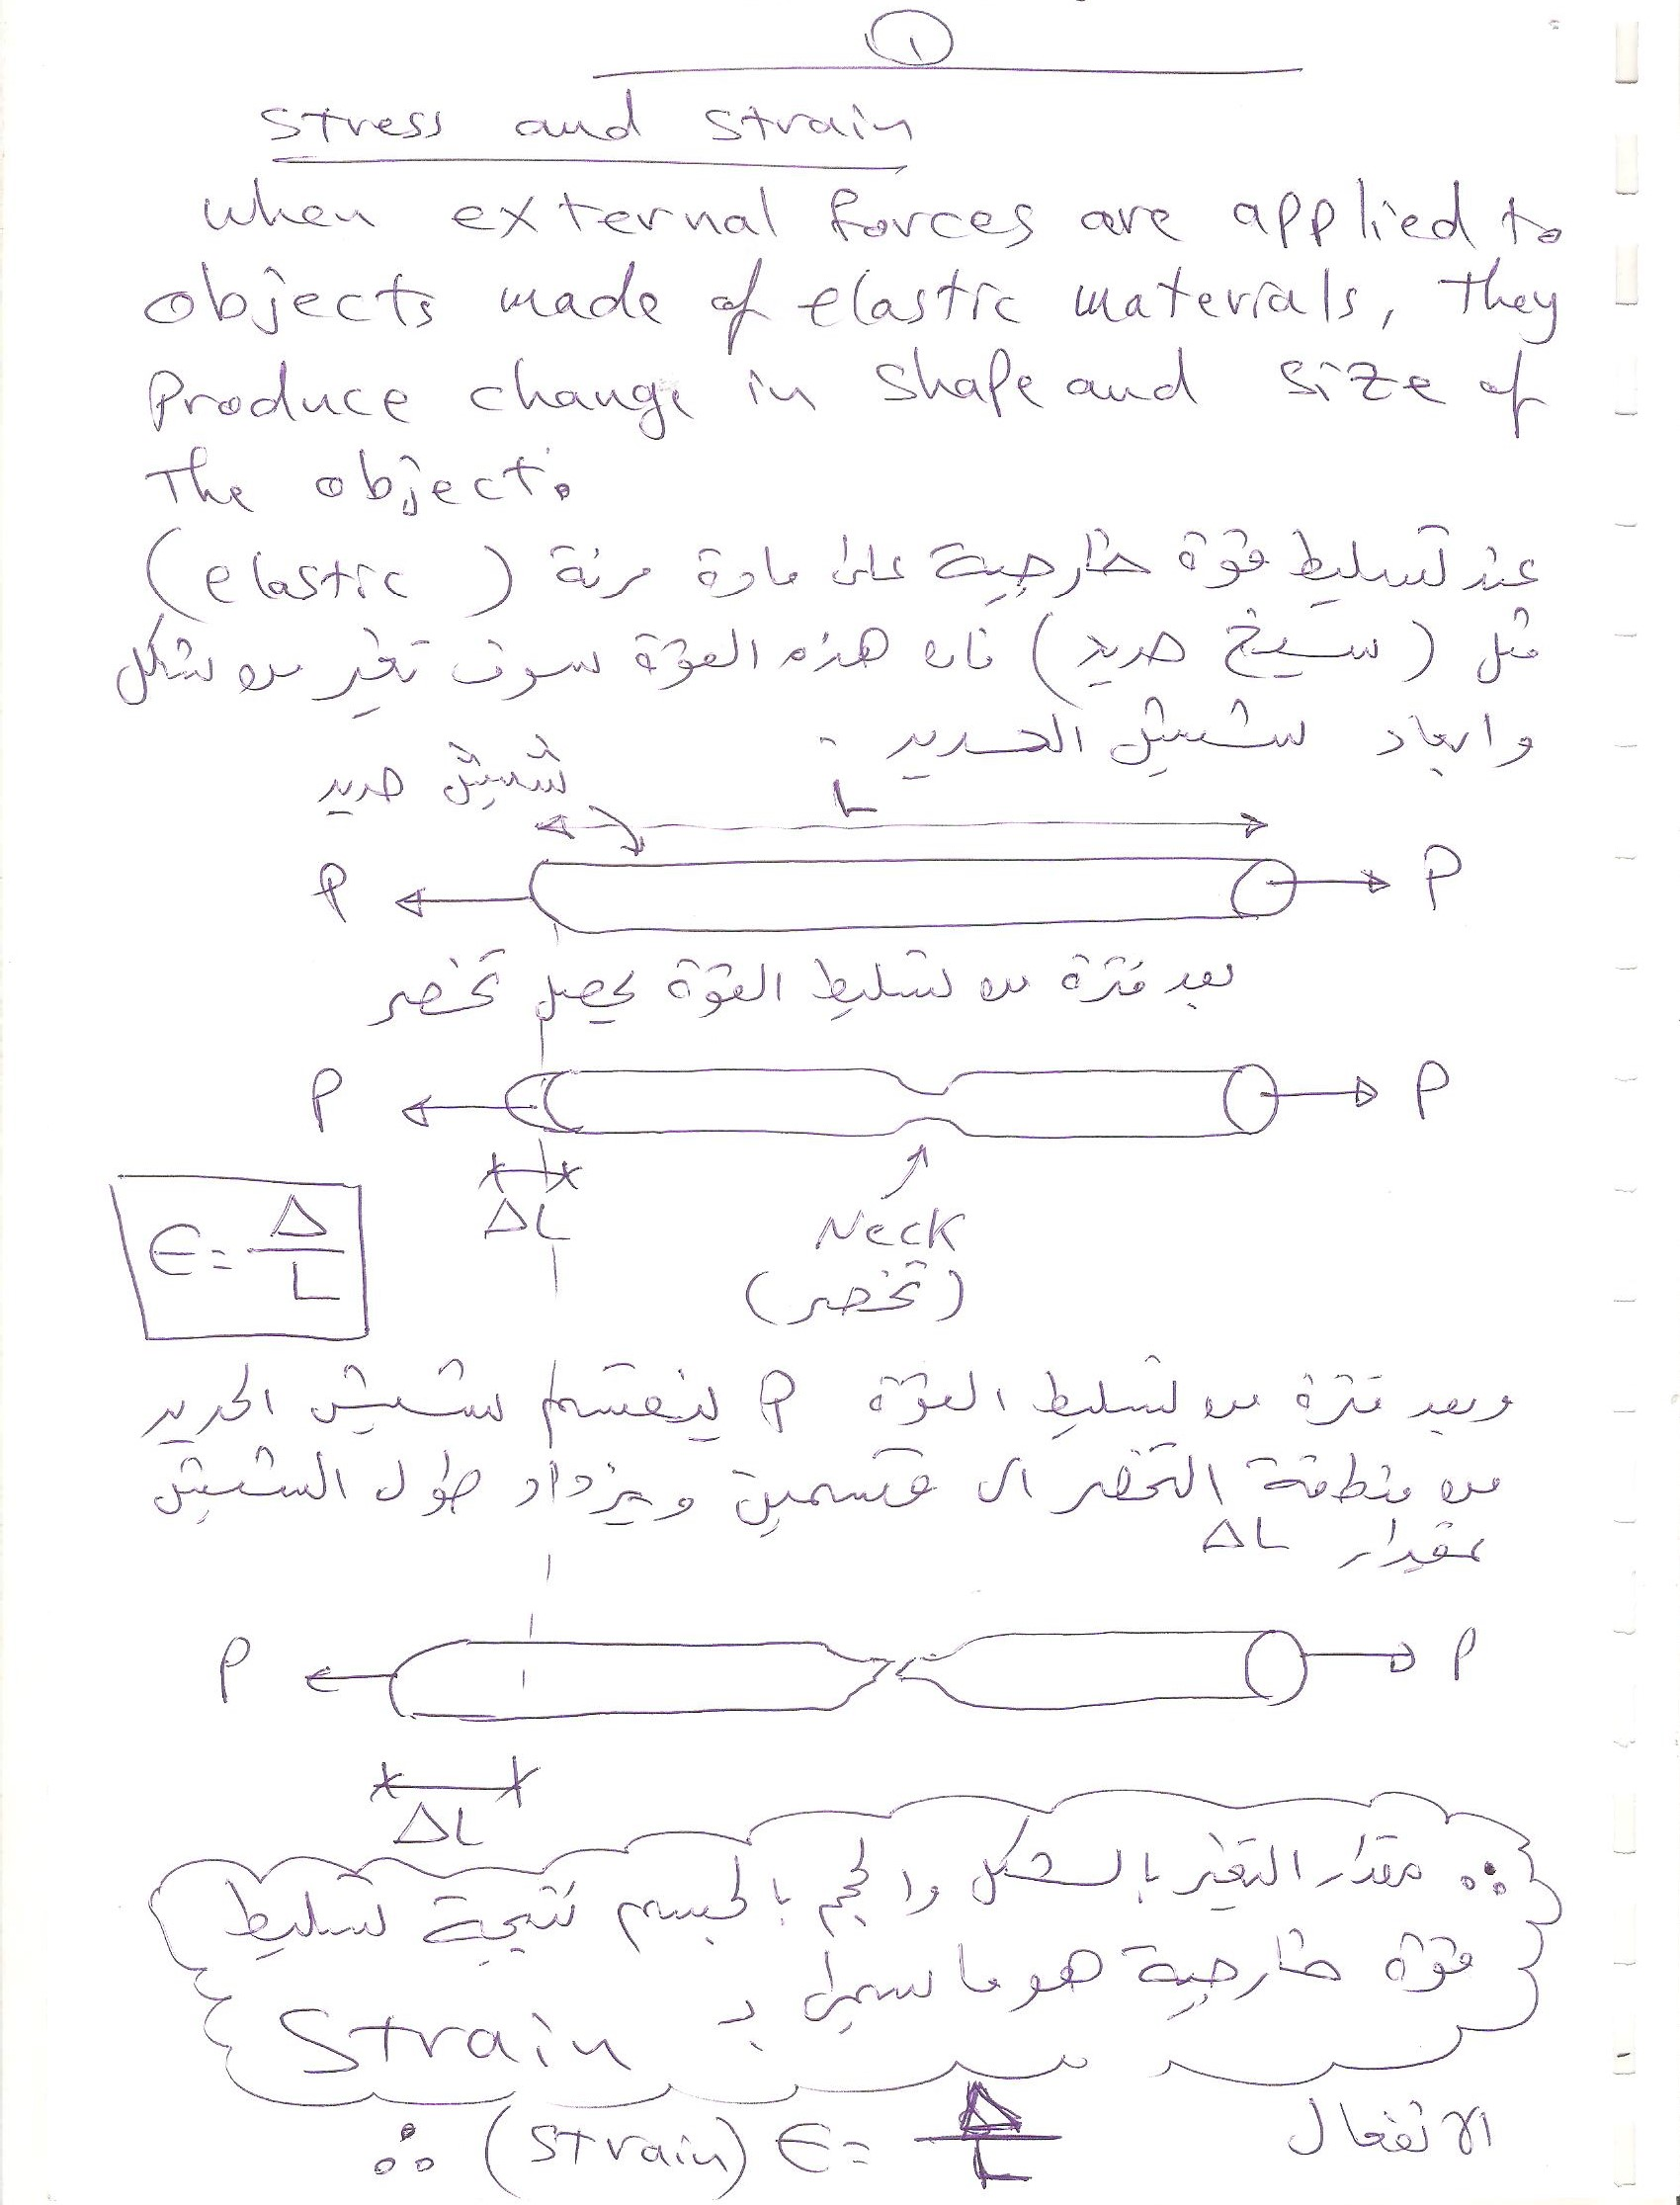 1
Stress and Strain
When external forces are applied to
objects made of elastic materials, they
produce change in shape and size of
the object.
عند تسليط قوة خارجية على مادة مرنة (elastic)
مثل (سيخ حديد) فان هذه القوة سوف تغير من شكل
وابعاد شيش الحديد.
شيش حديد
L
P P
بعد فترة من تسليط القوة يحصل تخصر
P P
ΔL
Neck
(تخصر)
ϵ = Δ / L
وبعد فترة من تسليط القوة P ينقسم شيش الحديد
من منطقة التخصر الى قسمين ويزداد طول الشيش
بمقدار ΔL
P P
ΔL
∴ مقدار التغير بالشكل والحجم بالجسم نتيجة تسليط
قوة خارجية هو ما يسمى بـ
Strain
الانفعال
∴ (Strain) ϵ = Δ / L